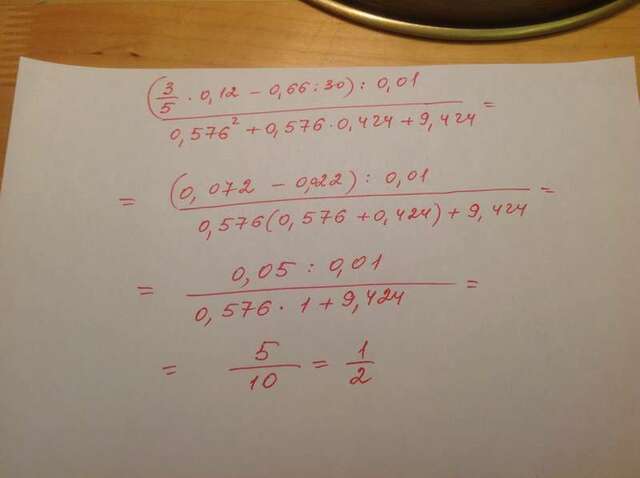 (3/5 · 0,12 - 0,66 : 30) : 0,01
0,576² + 0,576 · 0,424 + 9,424 =
= (0,072 - 0,022) : 0,01
0,576(0,576 + 0,424) + 9,424 =
= 0,05 : 0,01
0,576 · 1 + 9,424 =
= 5/10 = 1/2